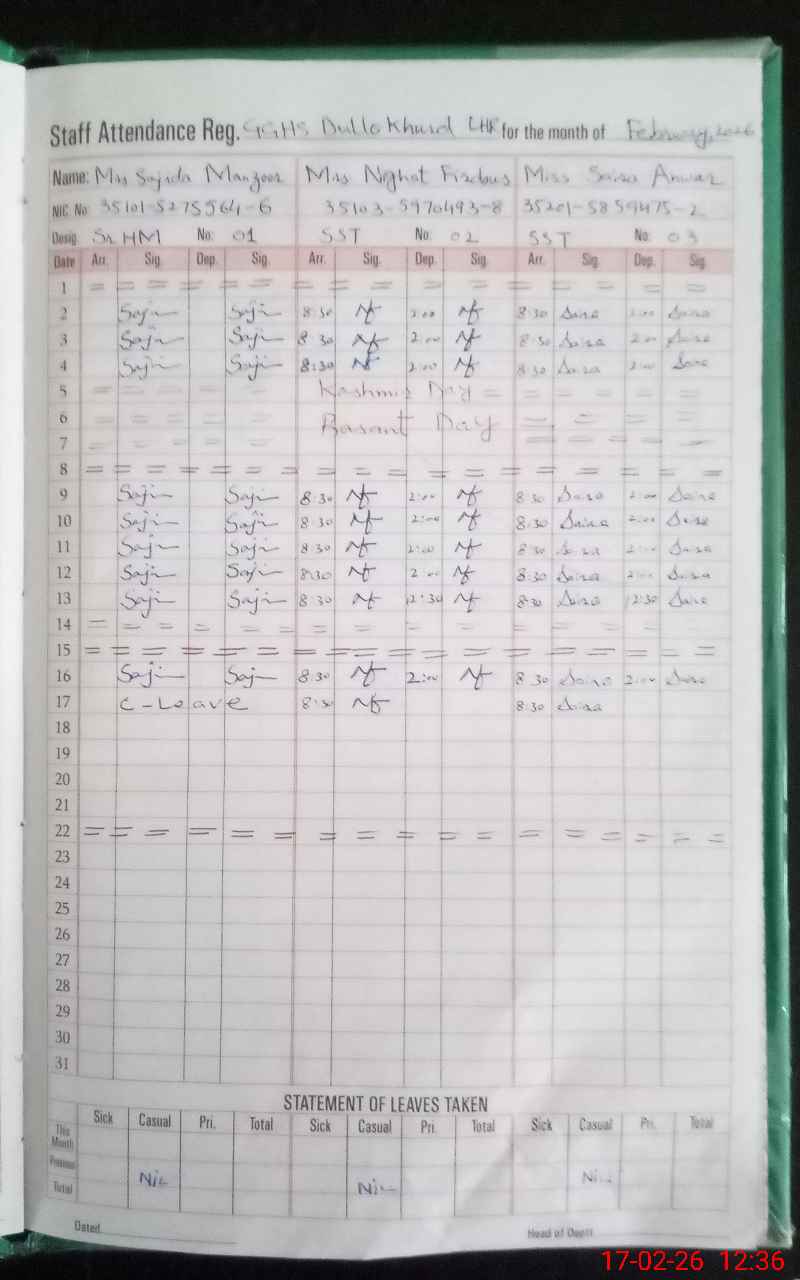 Staff Attendance Reg. GGHS Dullo Khurd LHR for the month of February, 2026
Name: Mrs Sajida Manzoor Mrs Nighat Firdous Miss Saira Anwar
NIC No 35101-5275564-6 35103-5970493-8 35201-5859475-2
Desig. Sr HM No: 01 SST No: 02 SST No: 03
Date Arr. Sig. Dep. Sig. Arr. Sig. Dep. Sig. Arr. Sig. Dep. Sig.
1 = = = = = = = = = = = =
2 Saji Saji 8:30 Nf 2:00 Nf 8:30 Saira 2:00 Saira
3 Saji Saji 8:30 Nf 2:00 Nf 8:30 Saira 2:00 Saira
4 Saji Saji 8:30 Nf 2:00 Nf 8:30 Saira 2:00 Saira
5 = = = = Kashmir Day = = = = =
6 = = = = Basant Day = = = =
7 = = = = = = = =
8 = = = = = = = = = = = = =
9 Saji Saji 8:30 Nf 2:00 Nf 8:30 Saira 2:00 Saira
10 Saji Saji 8:30 Nf 2:00 Nf 8:30 Saira 2:00 Saira
11 Saji Saji 8:30 Nf 2:00 Nf 8:30 Saira 2:00 Saira
12 Saji Saji 8:30 Nf 2:00 Nf 8:30 Saira 2:00 Saira
13 Saji Saji 8:30 Nf 12:30 Nf 8:30 Saira 12:30 Saira
14 = = = = = = = = = = = =
15 = = = = = = = = = = = = =
16 Saji Saji 8:30 Nf 2:00 Nf 8:30 Saira 2:00 Saira
17 C-Leave 8:30 Nf 8:30 Saira
18
19
20
21
22 = = = = = = = = = = = = = = =
23
24
25
26
27
28
29
30
31
STATEMENT OF LEAVES TAKEN
Sick Casual Pri. Total Sick Casual Pri. Total Sick Casual Pri. Total
This Month
Previous
Total Nil Nil Nil
Dated Head of Deptt
17-02-26 12:36